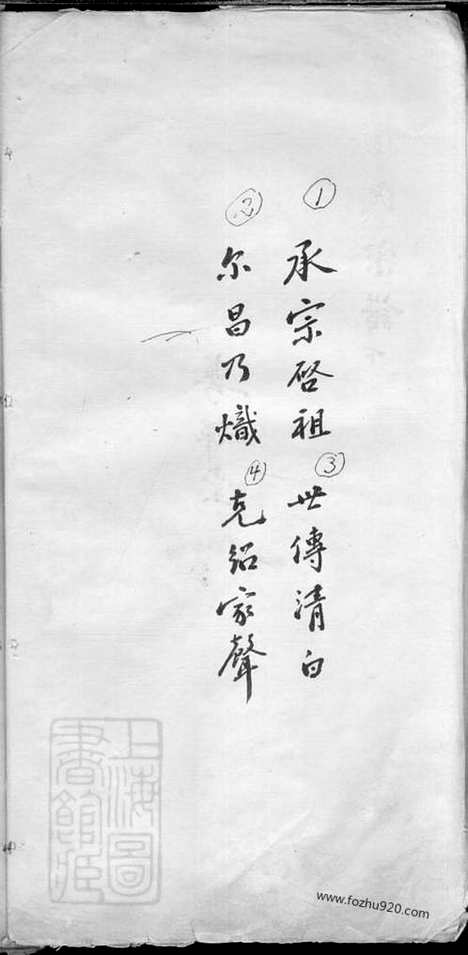 ① 承宗啓祖 ③ 世傳清白
② 尔昌乃熾 ④ 克紹家聲
上海圖
書館藏
www.fozhu920.com